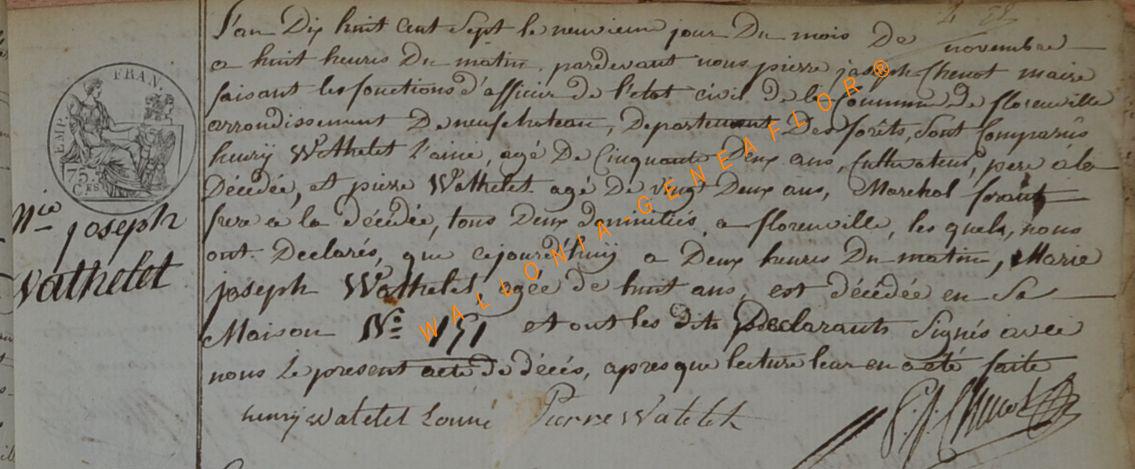 L'an Dix huit cent sept le neuvieme jour Du mois De novembre
a huit heures Du matin, pardevant nous pierre joseph Chenot maire
faisant les fonctions d'officier de l'etat civil de la Commune de florenville
arrondissement De neufchateau, Departement Des forêts, sont Comparus
henry Wathelet l'ainé, agé De Cinquante Deux ans, Cultivateur, pere à la
Décedée, et pierre Wathelet agé De vingt Deux ans, Marechal ferant
frere a la décédée, tous Deux domiciliés a florenville, les quels, nous
ont Declarés, que cejourd'huy a Deux heures Du matin, Marie
joseph Wathelet, agée de huit ans, est décédée en Sa
Maison N.o 151 et ont les dits Declarants Signés avec
nous Le present acte de décés, apres que lecture leur en a eté faite
henry watelet Lainé Pierre Watelet P. J. Chenot
EMP. FRAN.
75
C.ES
M.ie joseph
Wathelet
WALLONIA-GENEAFLOR®